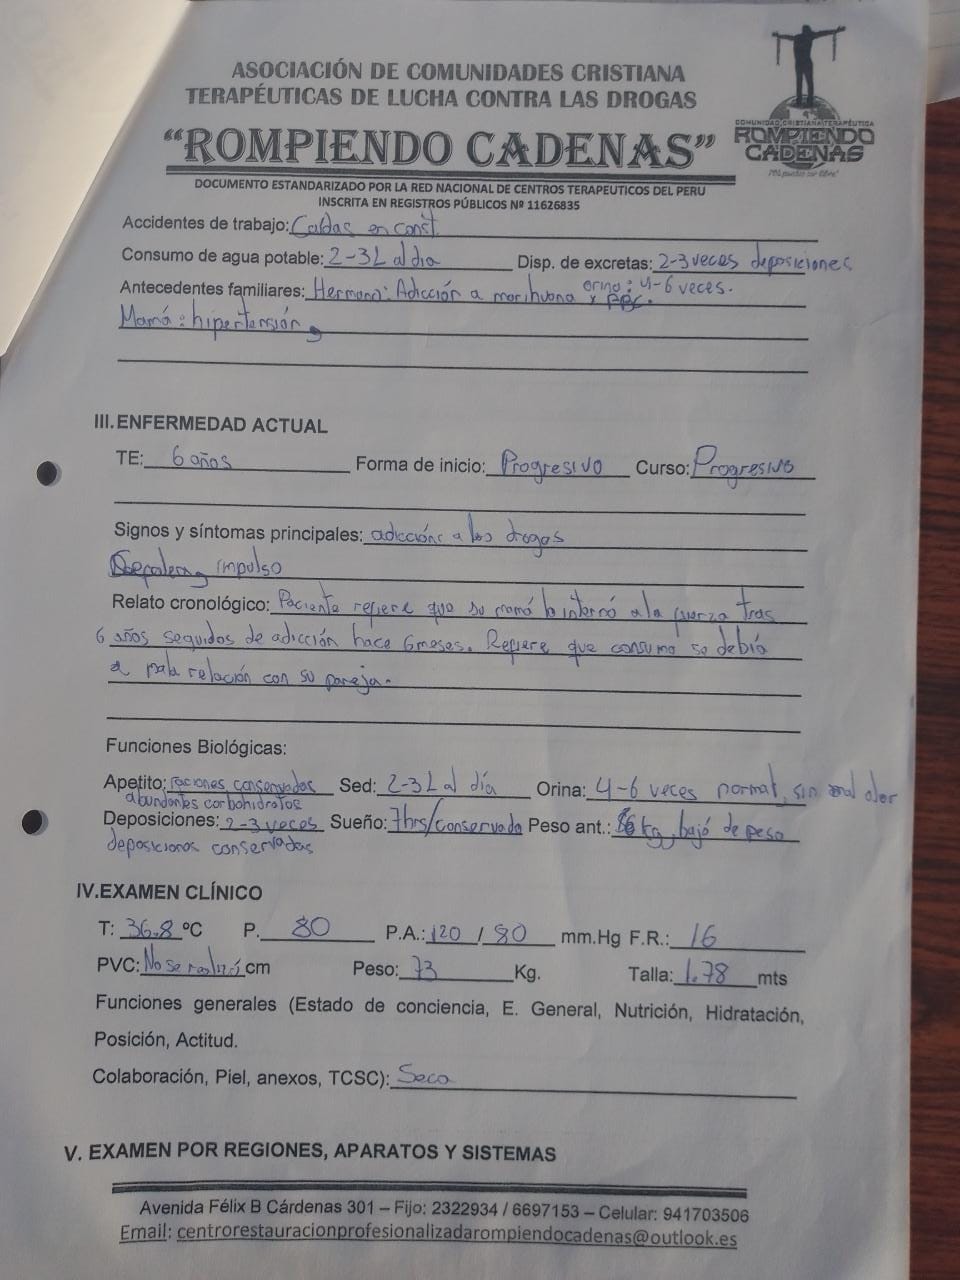 ASOCIACIÓN DE COMUNIDADES CRISTIANA
TERAPÉUTICAS DE LUCHA CONTRA LAS DROGAS
"ROMPIENDO CADENAS"
COMUNIDAD CRISTIANA TERAPÉUTICA
ROMPIENDO
CADENAS
DOCUMENTO ESTANDARIZADO POR LA RED NACIONAL DE CENTROS TERAPEUTICOS DEL PERU
INSCRITA EN REGISTROS PÚBLICOS Nº 11626835
Accidentes de trabajo: Caídas en const.
Consumo de agua potable: 2-3L al día Disp. de excretas: 2-3 veces deposiciones
orina: 4-6 veces.
Antecedentes familiares: Hermano: Adicción a marihuana y PBC.
Mamá: hipertensión
III. ENFERMEDAD ACTUAL
TE: 6 años Forma de inicio: Progresivo Curso: Progresivo
Signos y síntomas principales: adicción a las drogas
impulso
Relato cronológico: Paciente refiere que su mamá lo internó a la fuerza tras
6 años seguidos de adicción hace 6 meses. Refiere que consumo se debía
a mala relación con su pareja.
Funciones Biológicas:
Apetito: raciones conservadas Sed: 2-3L al día Orina: 4-6 veces normal, sin mal olor
abundantes carbohidratos
Deposiciones: 2-3 veces Sueño: 7hrs/conservada Peso ant.: kg, bajó de peso
deposiciones conservadas
IV. EXAMEN CLÍNICO
T: 36.8 ºC P. 80 P.A.: 120 / 80 mm.Hg F.R.: 16
PVC: No se realizó cm Peso: 73 Kg. Talla: 1.78 mts
Funciones generales (Estado de conciencia, E. General, Nutrición, Hidratación,
Posición, Actitud.
Colaboración, Piel, anexos, TCSC): Seca
V. EXAMEN POR REGIONES, APARATOS Y SISTEMAS
Avenida Félix B Cárdenas 301 – Fijo: 2322934 / 6697153 – Celular: 941703506
Email: centrorestauracionprofesionalizadarompiendocadenas@outlook.es